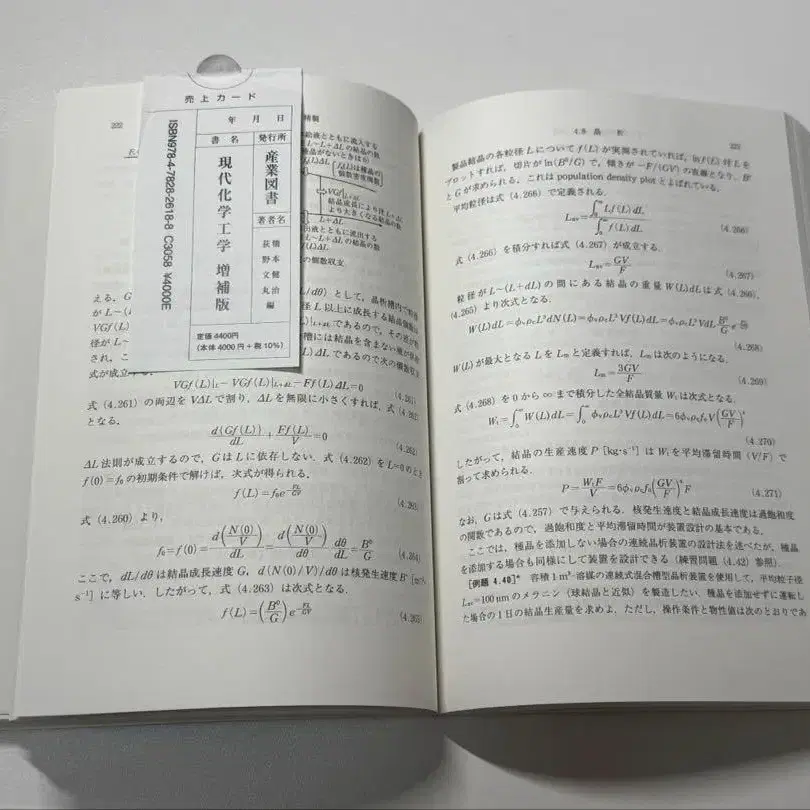 売上カード
年 月 日
書名
発行所
現代化学工学 増補版
産業図書
著者名
橋本健治
荻野文丸
編
定価4400円
(本体4000円+税10%)
ISBN978-4-7828-2618-8 C3058 ¥4000E
222
給液とともに流入する
L~L+ΔLの結晶の数
VGf|L
結晶成長により径L+ΔL
より大きくなる結晶の数
L+ΔL
出液とともに流出する
L~L+ΔLの結晶の数
の個数収支
える.
として,晶析槽内で粒径
径L以上に成長する結晶個数は
VGf(L)
であるので,その差が粒
径が
槽には結晶を含まない液が供給
され,
ΔLであるので次の個数収支
式が成立
VGf(L)|L−VGf(L)|L+ΔL−Ff(L)ΔL=0 (4.261)
式 (4.261) の両辺をVΔLで割り,ΔLを無限に小さくすれば,式 (4.262)
となる.
d{Gf(L)}/dL+Ff(L)/V=0 (4.262)
ΔL法則が成立するので,GはLに依存しない.式 (4.262) をL=0のとき
f(0)=f₀の初期条件で解けば,次式が得られる.
f(L)=f₀e^(−FL/GV) (4.263)
式 (4.260) より,
f₀=f(0)=d(N(0)/V)/dL=d(N(0)/V)/dθ dθ/dL=B⁰/G (4.264)
ここで,dL/dθは結晶成長速度G,d(N(0)/V)/dθは核発生速度B⁰[m⁻³·
s⁻¹]に等しい.したがって,式 (4.263) は次式となる.
f(L)=(B⁰/G)e^(−FL/GV) (4.265)
4.8 晶析
223
製品結晶の各粒径Lについてf(L)が実測されていれば,ln f(L) 対Lを
プロットすれば,切片がln(B⁰/G)で,傾きが−F/(GV)の直線となり,B⁰
とGが求められる.これはpopulation density plotとよばれている.
平均粒径は式 (4.266) で定義される.
Lav=∫₀^∞Lf(L)dL/∫₀^∞f(L)dL (4.266)
式 (4.266) を積分すれば式 (4.267) が成立する.
Lav=GV/F (4.267)
粒径がL~(L+dL)の間にある結晶の重量W(L)dLは式 (4.266),
(4.265) より次式となる.
W(L)dL=φᵥρcL³dN(L)=φᵥρcL³Vf(L)dL=φᵥρcL³VdL B⁰/G e^(−FL/GV)
(4.268)
W(L)が最大となるLをLmと定義すれば,Lmは次のようになる.
Lm=3GV/F (4.269)
式 (4.268) を0から∞まで積分した全結晶質量Wtは次式となる.
Wt=∫₀^∞W(L)dL=∫₀^∞φᵥρcL³Vf(L)dL=6φᵥρcf₀V(GV/F)⁴
(4.270)
したがって,結晶の生産速度P[kg·s⁻¹]はWtを平均滞留時間(V/F)で
割って求められる.
P=WtF/V=6φᵥρcf₀(GV/F)⁴F (4.271)
なお,Gは式 (4.257) で与えられる.核発生速度と結晶成長速度は過飽和度
の関数であるので,過飽和度と平均滞留時間が装置設計の基本である.
ここでは,種晶を添加しない場合の連続晶析装置の設計法を述べたが,種晶
を添加する場合も同様にして装置を設計できる(練習問題 (4.42) 参照).
[例題 4.40]* 容積1m³·溶媒の連続式混合槽型晶析装置を使用して,平均粒子径
Lav=100μmのメラニン(球結晶と近似)を製造したい.種晶を添加せずに運転し
た場合の1日の結晶生産量を求めよ.ただし,操作条件と物性値は次のとおりであ